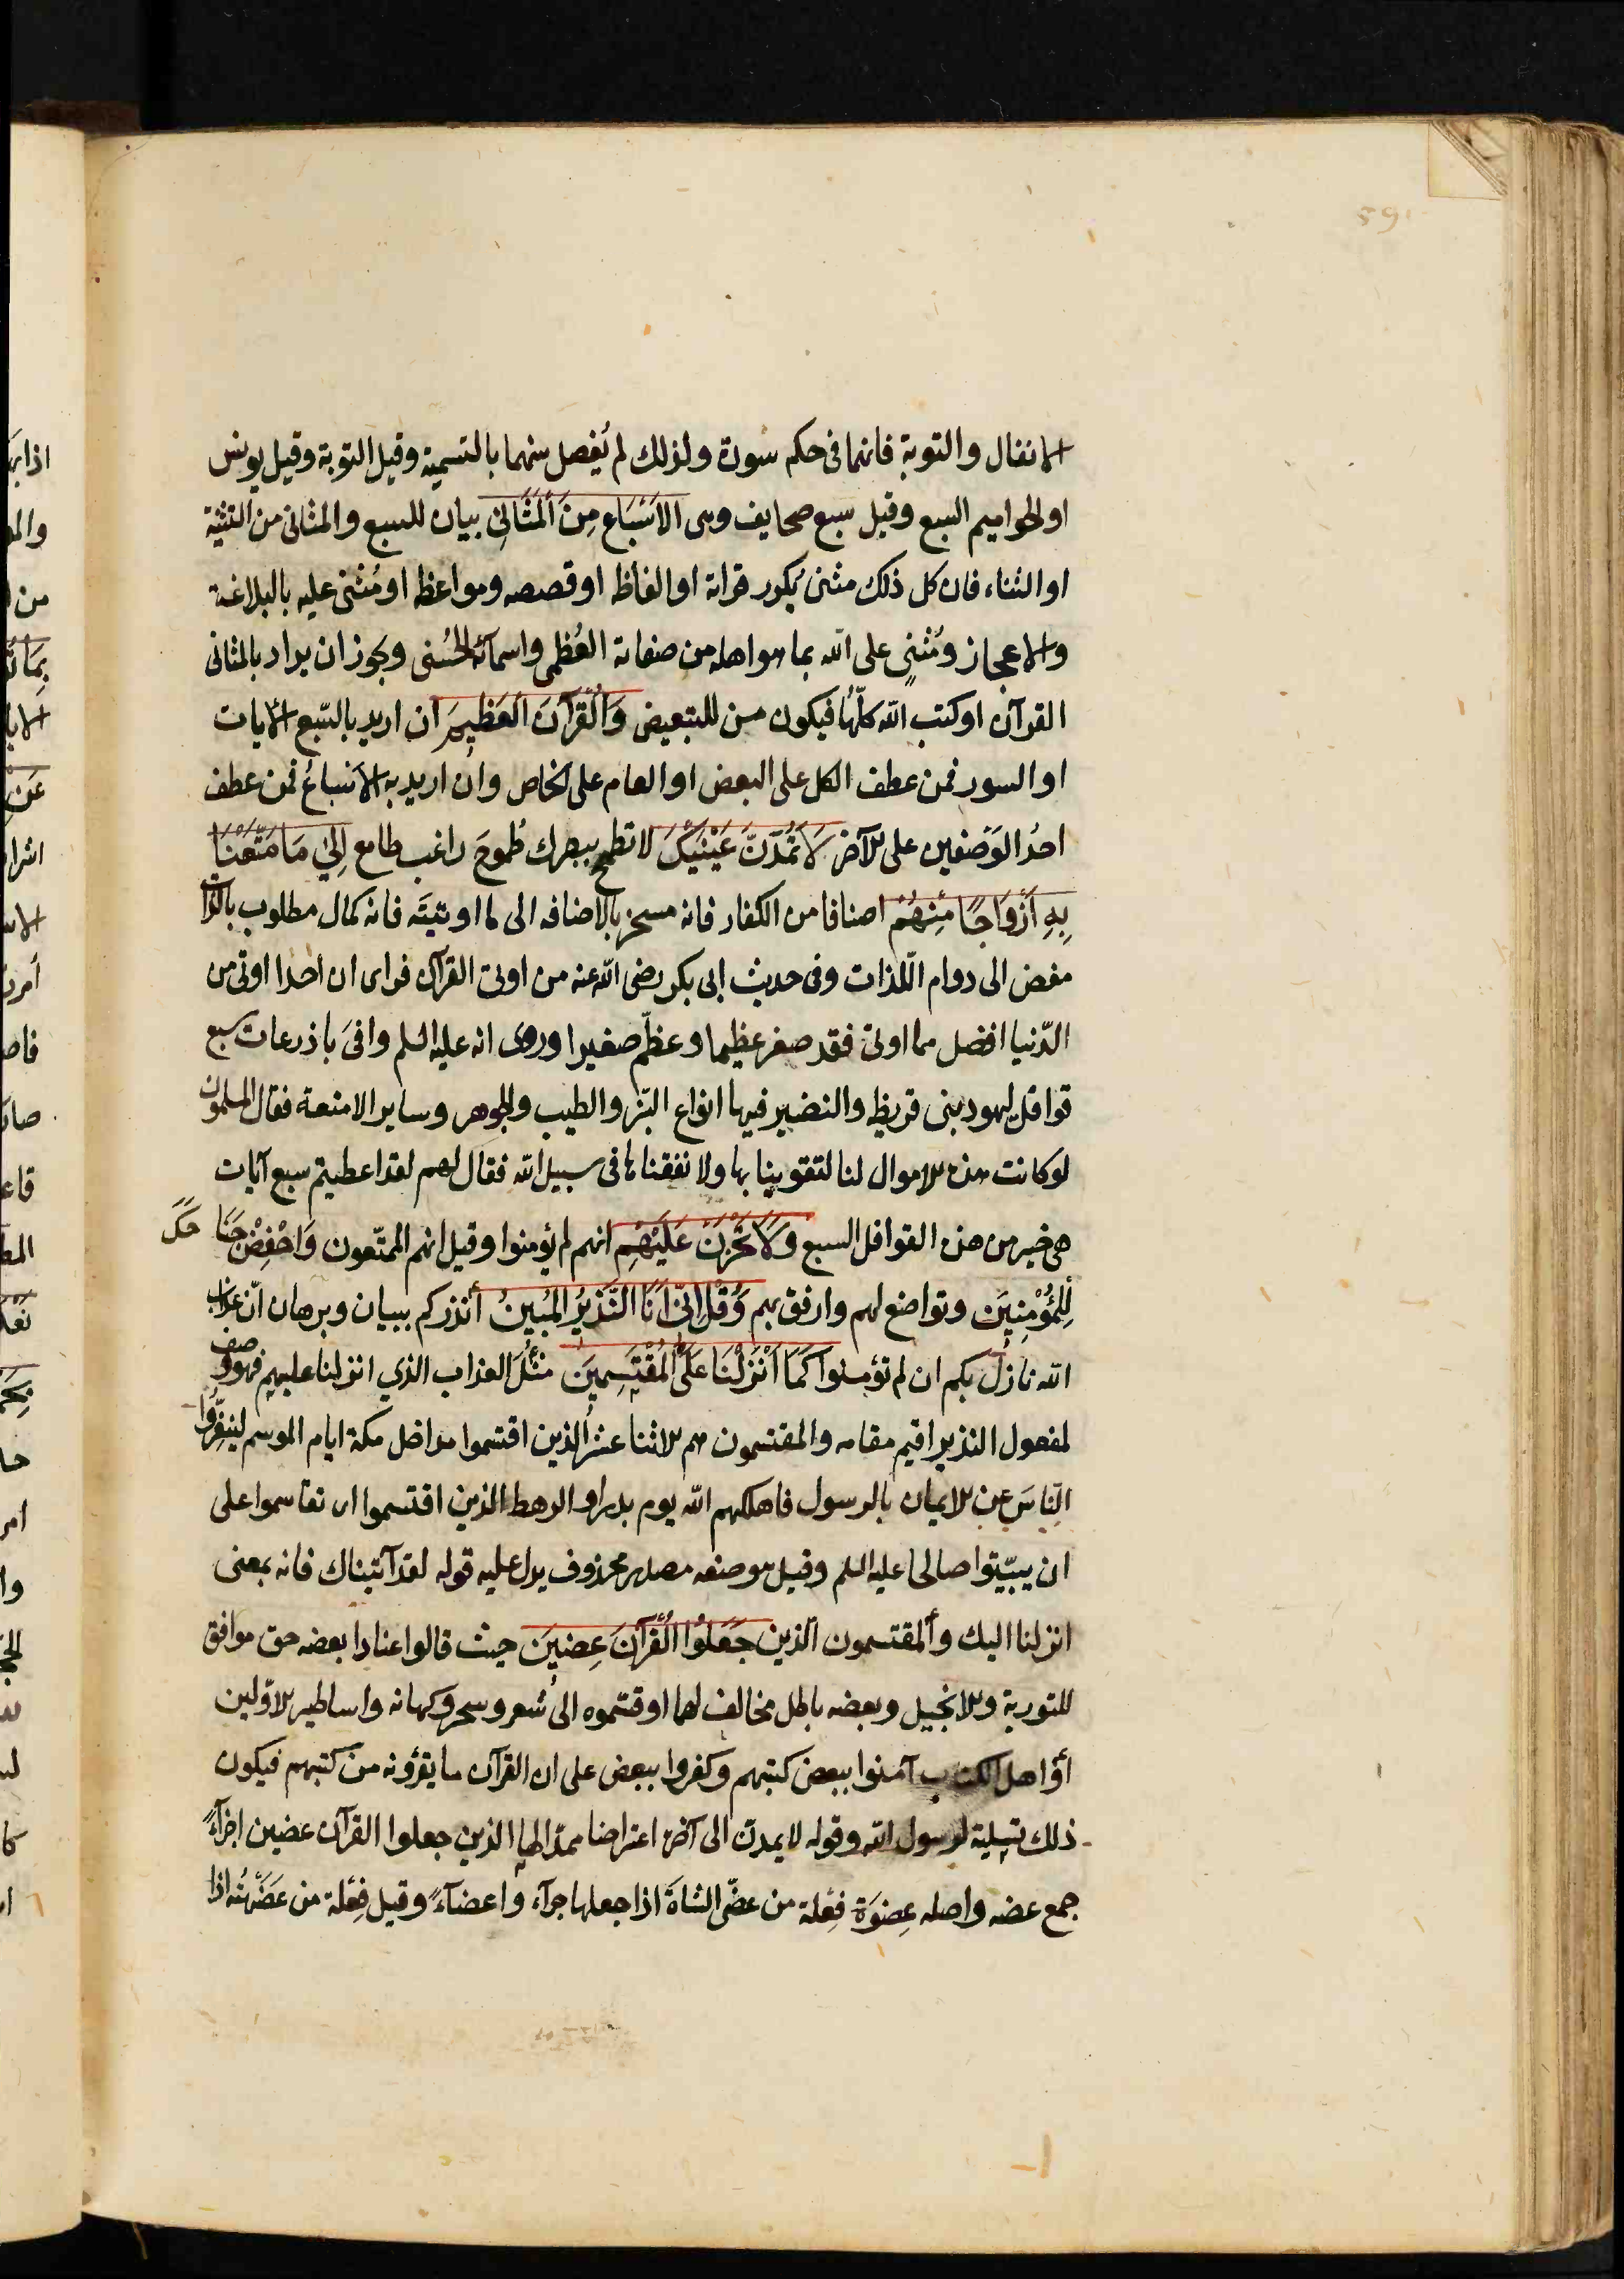 591
الانفال والتوبة فانهما فى حكم سورة ولذلك لم يُفصل بينهما بالتسمية وقيل التوبة وقيل يونس
او الحواميم السبع وقيل سبع صحايف وهى الاَسْبَاع مِنَ الْمَثَانِي بيان للسبع والمثانى من التثنية
او الثناء، فان كل ذلك مثنى يُكرر قراته او الفاظه او قصصه ومواعظه او مُثنى عليه بالبلاغة
والاعجاز ومُثنٍى على الله بما هو اهله من صفاته العُظمى واسمآئه الحُسْنى ويجوز ان يراد بالمثانى
القرآن او كتب الله كلّها فيكون من للتبعيض وَالْقُرْآنَ الْعَظِيمَ ان اريد بالسّبع الآيات
او السور فمن عطف الكل على البعض او العام على الخاص وان اريد به الاَسْباعُ فمن عطف
احدُ الوَصْفين على الآخر لَا تَمُدَّنَّ عَيْنَيْكَ لا تطمح ببصرك طُموحَ راغب طامع اِلٰي مَا مَتَّعْنَا
بِهِ اَزْوَاجًا مِنْهُمْ اصنافا من الكفار فانه مستحقر بالاضافه الى ما اوتيتَه فانه كمال مطلوب بالذا
مفض الى دوام اللّذات وفى حديث ابى بكر رضى الله عنه من اوتى القرآن فراى ان احدا اوتى من
الدّنيا افضل مما اوتى فقد صغر عظيما وعظّم صغيرا وروى انه عليه السلم وافىَ باذرعات سبع
قوافل ليهود بنى قريظه والنضير فيها انواع البَزّ والطيب والجوهر وساير الامتعة فقال المسلمون
لو كانت هذه الاموال لنا لتقوينا بها ولانفقناها فى سبيل الله فقال لهم لقد اعطيتم سبع آيات
هى خير من هذه القوافل السبع وَلَا تَحْزَنْ عَلَيْهِمْ انهم لم يؤمنوا وقيل انهم الممتّعون وَاخْفِضْ جَنَا حَكَ
لِلْمُؤْمِنِينَ وتواضع لهم وارفق بهم وَقُلْ اِنِّي اَنَا النَّذِيرُ الْمُبِينُ أنذركم ببيان وبرهان انّ عذاب
الله نازل بكم ان لم تؤمنوا كَمَا اَنْزَلْنَا عَلَى الْمُقْتَسِمِينَ مثلَ العذاب الذي انزلنا عليهم فهو وصف
لمفعول النذير اقيم مقامه والمقتسمون هم الاثنا عشر الذين اقتسموا مداخل مكة ايام الموسم لينفِّرُوا
النّاسَ عن الايمان بالرسول فاهلكهم الله يوم بدر او الرهط الذين اقتسموا اى تقاسموا على
ان يبيّتوا صالحا عليه السلم وقيل هو صفه مصدر محذوف يدل عليه قوله لقد آتيناك فانه بمعنى
انزلنا اليك والمقتسمون الّذين جَعَلُوا الْقُرْآنَ عِضِينَ حيث قالوا عنادا بعضه حق موافق
للتورية والانجيل وبعضه باطل مخالف لهما او قسّموه الى شعر وسحر وكهانه واساطير الاوّلين
أو اهل الكتاب آمنوا ببعض كتبهم وكفروا ببعض على ان القرآن ما يقرؤنه من كتبهم فيكون
ذلك تسلية لرسول الله وقوله لا يمدن الى آخره اعتراضا ممدّا لها الذين جعلوا القرآن عضين اجزآءً
جمع عضه واصله عِضوَة فِعْلة من عضّى الشاةَ اذا جعلها جزآء، واعضآءً وقيل فِعْلة من عَضَهْتُه اذا